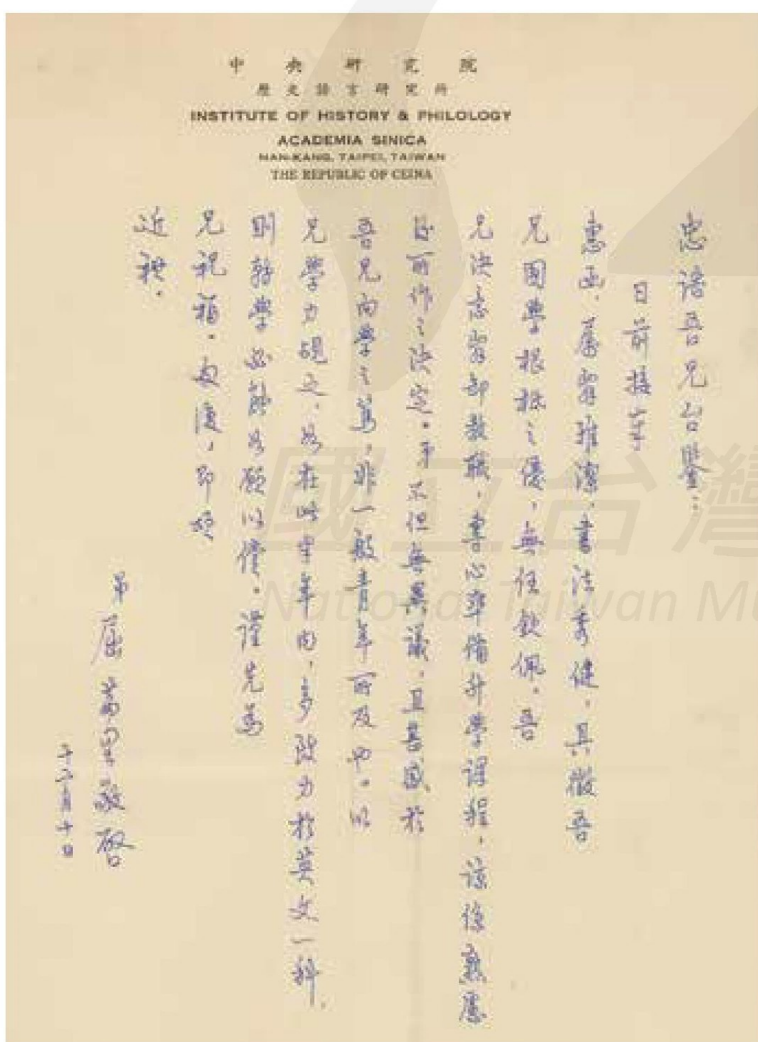 中央研究院
歷史語言研究所
INSTITUTE OF HISTORY & PHILOLOGY
ACADEMIA SINICA
NAN-KANG, TAIPEI, TAIWAN
THE REPUBLIC OF CHINA
忠吾兄台鑒：
日前接奉
惠函，雅潔，書法秀健，具徵吾
兄國學根柢之優，無任欽佩。吾
兄決志辭卸教職，專心準備升學課程，諒係熟慮
後所作之決定。弟不但無異議，且甚感於
吾兄向學之篤，非一般青年所及也。以
兄學力觀之，如在此半年內，多致力於英文一科，
則轉學必能如願以償。謹先為
兄祝福。匆復，即頌
近祺。
弟屈萬里敬啓
十二月十日
國立台灣
National Taiwan Mu